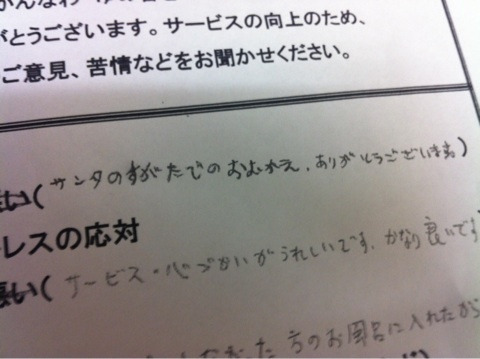 がとうございます。サービスの向上のため、
ご意見、苦情などをお聞かせください。
い(サンタのすがたでのおむかえ、ありがとうございます)
レスの応対
悪い(サービス・心づかいがうれしいです、かなり良いです
方のお風呂に入れたから